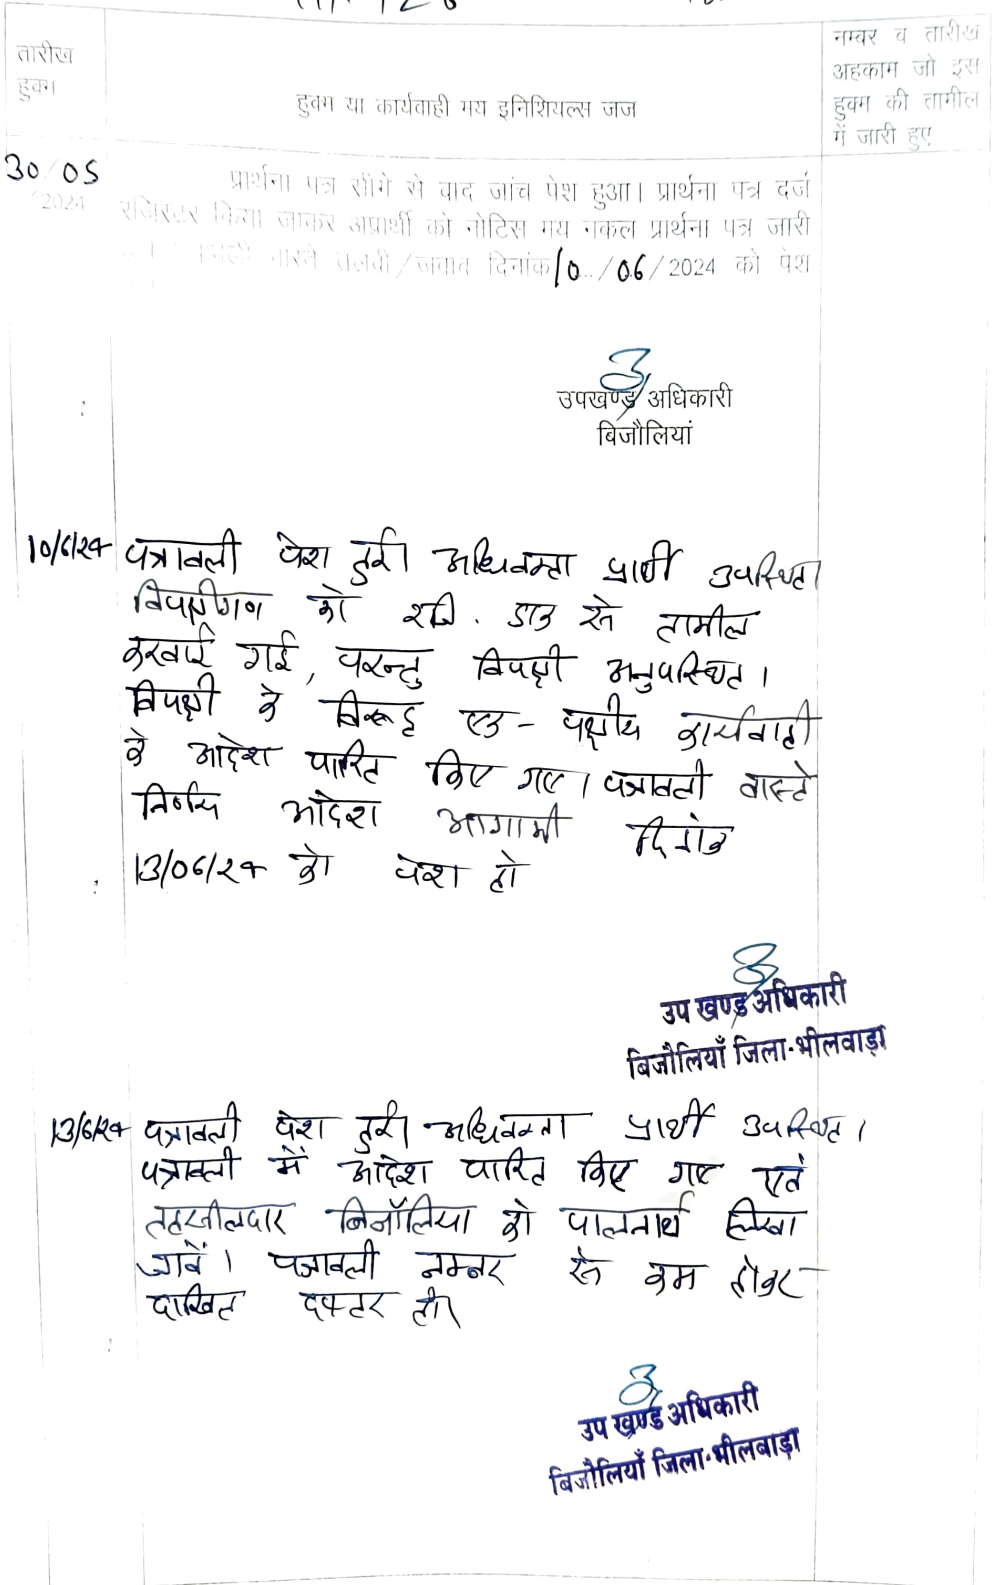 तारीख
हुक्म
हुक्म या कार्यवाही मय इनिशियल्स जज
नम्बर व तारीख
अहकाम जो इस
हुक्म की तामील
में जारी हुए
30/05
/2024
प्रार्थना पत्र सीगे से वाद जांच पेश हुआ। प्रार्थना पत्र दर्ज
रजिस्टर किया जाकर अप्रार्थी को नोटिस मय नकल प्रार्थना पत्र जारी
वास्ते तलबी/जवाब दिनांक 10../06/2024 को पेश
उपखण्ड अधिकारी
बिजौलियां
10/6/24 पत्रावली पेश हुई। अधिवक्ता प्रार्थी उपस्थित।
विपक्षीगण को रजि. डाक से तामील
करवाई गई, परन्तु विपक्षी अनुपस्थित।
विपक्षी के विरूद्ध एक-पक्षीय कार्यवाही
के आदेश पारित किए गए। पत्रावली वास्ते
निर्णय आदेश आगामी दिनांक
13/06/24 को पेश हो
उप खण्ड अधिकारी
बिजौलियाँ जिला-भीलवाड़ा
13/6/24 पत्रावली पेश हुई। अधिवक्ता प्रार्थी उपस्थित।
पत्रावली में आदेश पारित किए गए एवं
तहसीलदार बिजौलिया को पालनार्थ लिखा
जावें। पत्रावली नम्बर से कम होकर
दाखिल दफ्टर हो।
उप खण्ड अधिकारी
बिजौलियाँ जिला-भीलवाड़ा